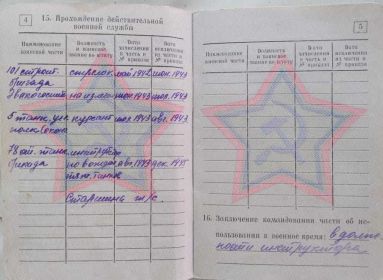 4
15. Прохождение действительной
военной службы
Наименование
воинской части
Должность
и воинское
звание по штату
Дата
зачисления
в часть и
№ приказа
Дата
исключения
из части и
№ приказа
101 строит. стрелок май 1942 июн. 1943
бригада
Эвакогоспит. на излеч. июн. 1943 июл. 1943
5 танк. уч. курсант июл. 1943 авг. 1943
полк
78 от. танк. инструктор
бригада по вожден. авг. 1943 дек. 1945
тяж. танка
Старшина
5
Наименование
воинской части
Должность
и воинское
звание по штату
Дата
зачисления
в часть и
№ приказа
Дата
исключения
из части и
№ приказа
16. Заключение командования части об ис-
пользовании в военное время: в долж-
ности инструктора